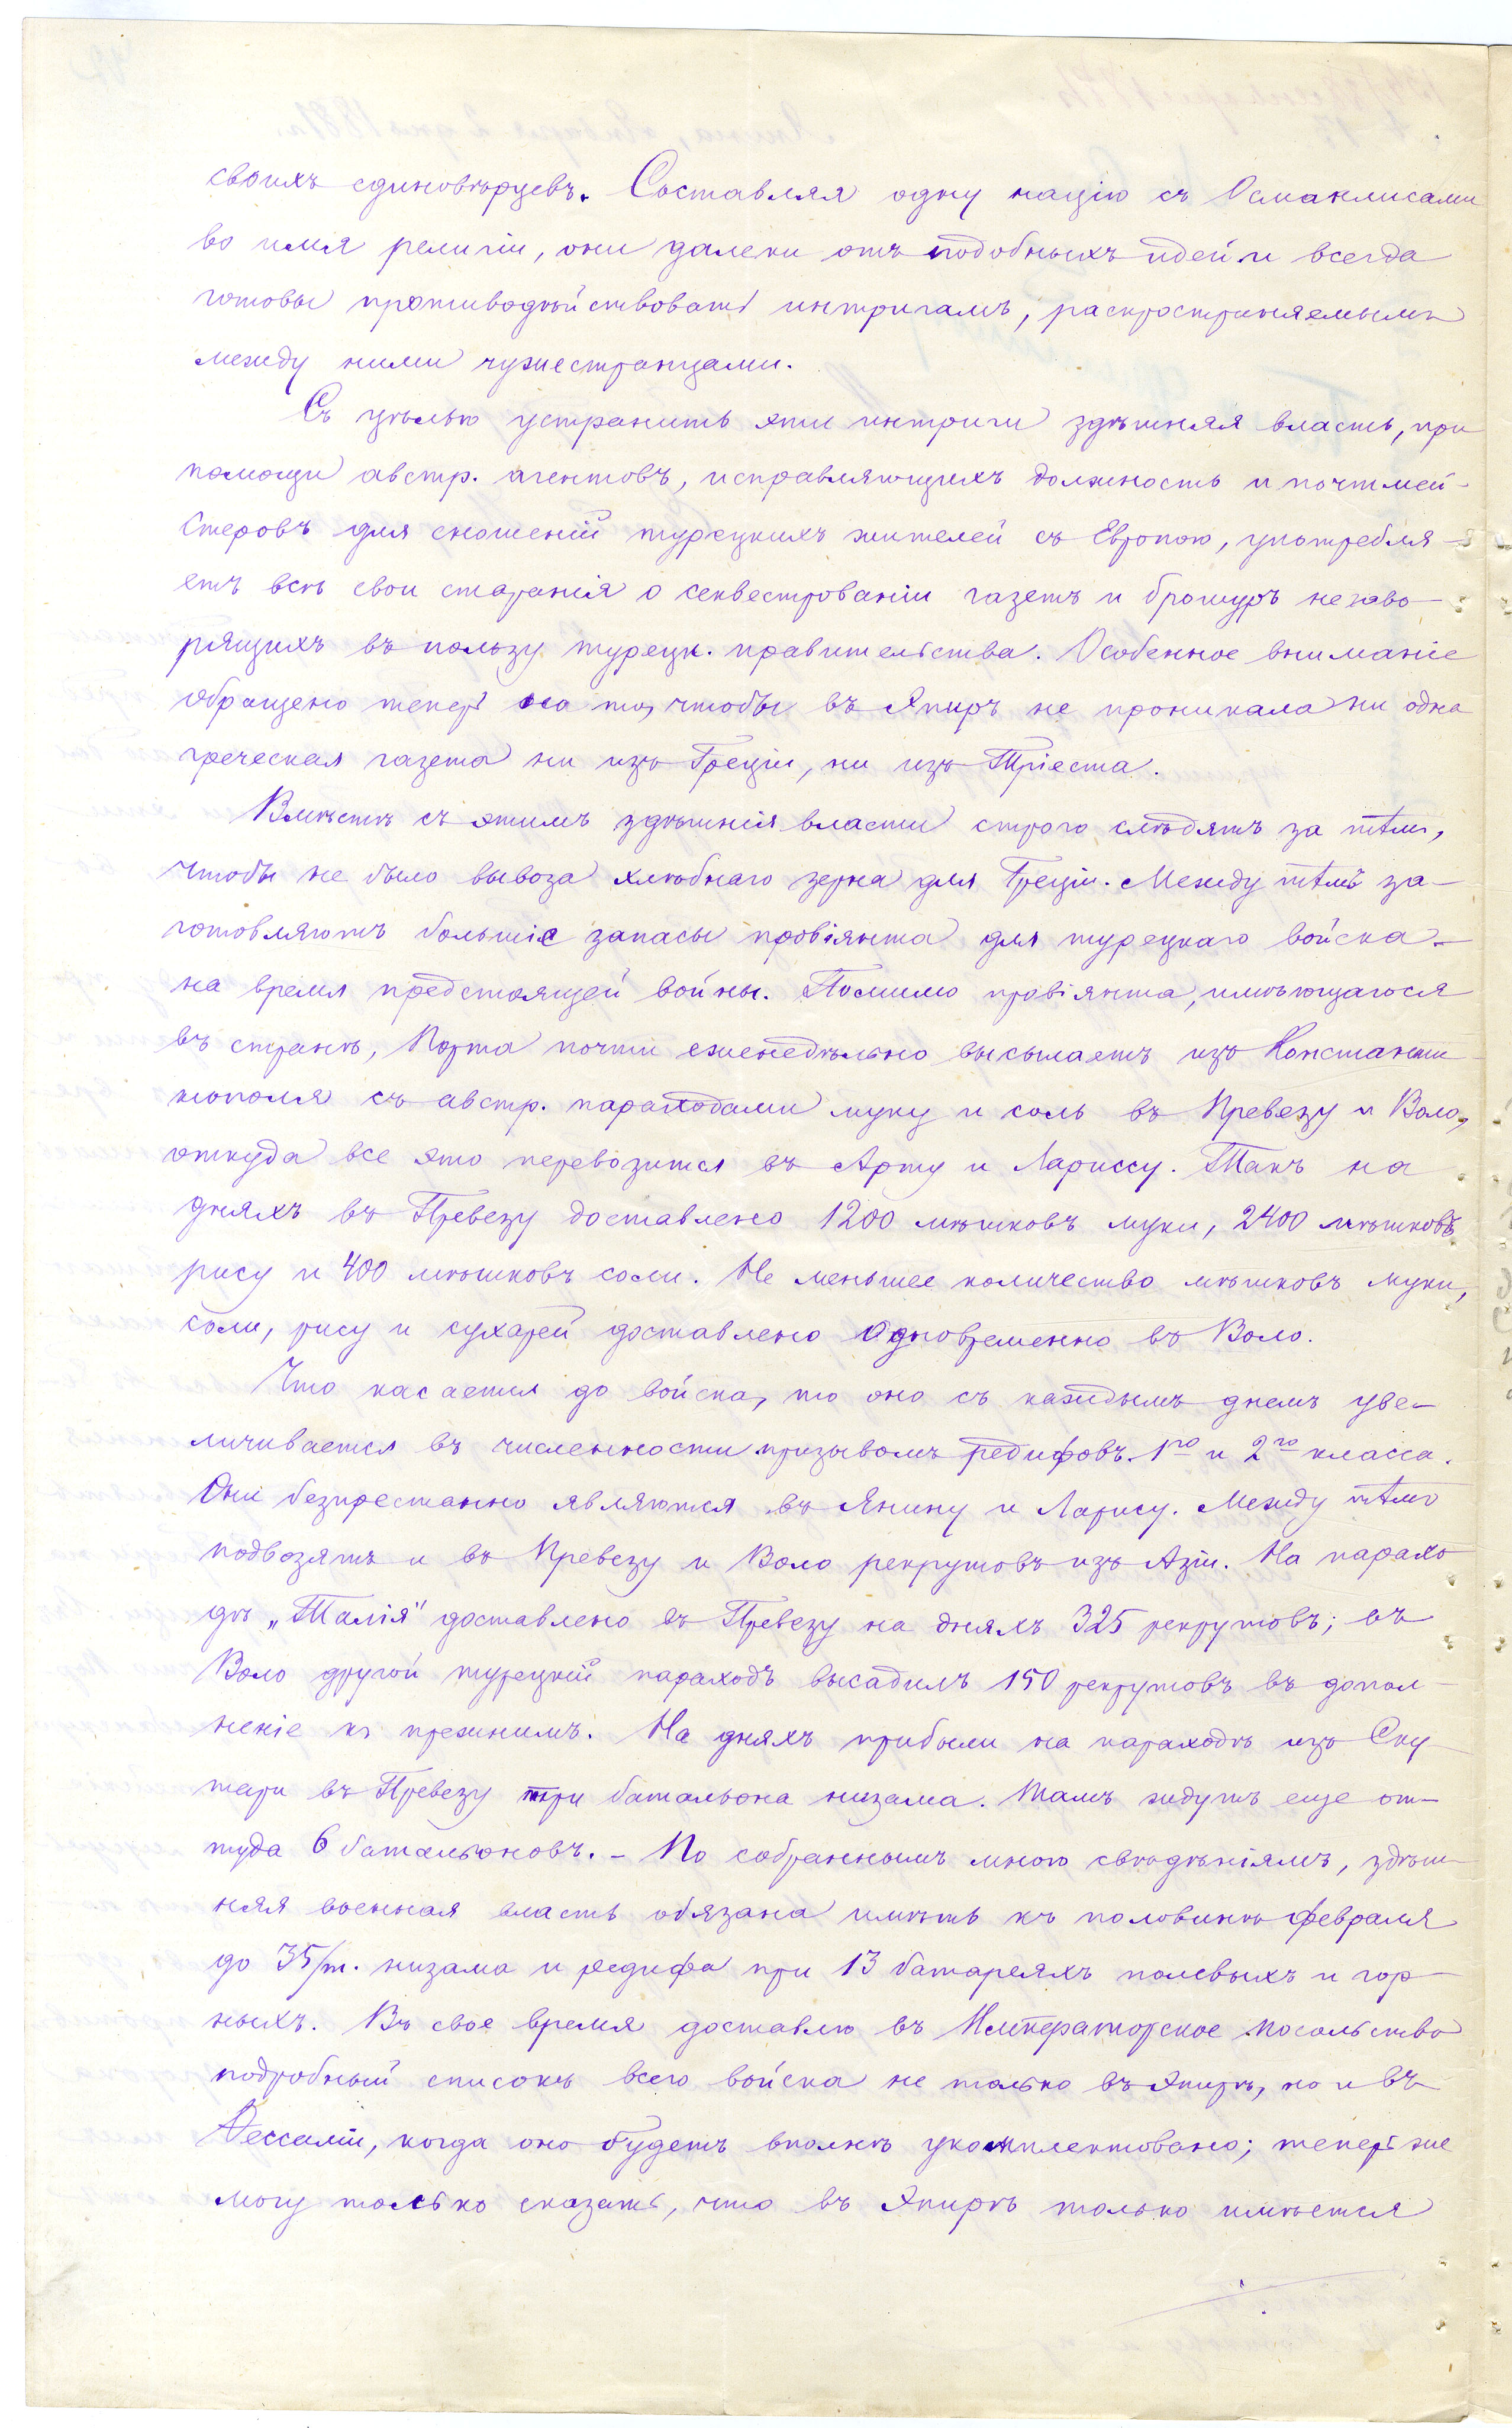 своихъ единовѣрцевъ. Составляя одну націю съ Османлисами
во имя религіи, они далеки отъ подобныхъ идей и всегда
готовы противодѣйствовать интригамъ, распространяемымъ
между ними чужестранцами.
Съ цѣлью устранить эти интриги здѣшняя власть, при
помощи австр. агентовъ, исправляющихъ должность и почтмей-
стеровъ для сношеній турецкихъ жителей съ Европою, употребля-
етъ всѣ свои старанія о секвестрованіи газетъ и брошуръ не гово-
рящихъ въ пользу турецк. правительства. Особенное вниманіе
обращено теперь на то, чтобы въ Эпиръ не проникала ни одна
греческая газета ни изъ Греціи, ни изъ Тріеста.
Вмѣстѣ съ этимъ здѣшнія власти строго слѣдятъ за тѣмъ,
чтобы не было вывоза хлѣбнаго зерна для Греціи. Между тѣмъ за-
готовляютъ большіе запасы провіянта для турецкаго войска
на время предстоящей войны. Помимо провіянта, имѣющагося
въ странѣ, Порта почти еженедѣльно высылаетъ изъ Константи-
нополя съ австр. параходами муку и соль въ Превезу и Воло,
откуда все это перевозится въ Арту и Лариссу. Такъ на
дняхъ въ Превезу доставлено 1200 мѣшковъ муки, 2400 мѣшковъ
рису и 400 мѣшковъ соли. Не меньшее количество мѣшковъ муки,
соли, рису и сухарей доставлено одновременно въ Воло.
Что касается до войска, то оно съ каждымъ днемъ уве-
личивается въ численности призывомъ редифовъ 1го и 2го класса.
Они безпрестанно являются въ Янину и Ларису. Между тѣмъ
подвозятъ и въ Превезу и Воло рекрутовъ изъ Азіи. На парахо-
дѣ „Талія" доставлено въ Превезу на дняхъ 325 рекрутовъ; въ
Воло другой турецкій параходъ высадилъ 150 рекрутовъ въ допол-
неніе къ прежнимъ. На дняхъ прибыли на параходѣ изъ Ску-
тари въ Превезу три батальона низама. Тамъ ждутъ еще от-
туда 6 батальоновъ. – По собраннымъ мною свѣдѣніямъ, здѣш-
няя военная власть обязана имѣть къ половинѣ февраля
до 35/т. низама и редифа при 13 батареяхъ полевыхъ и гор-
ныхъ. Въ свое время доставлю въ Императорское Посольство
подробный списокъ всего войска не только въ Эпирѣ, но и въ
Ѳессаліи, когда оно будетъ вполнѣ укомплектовано; теперь же
могу только сказать, что въ Эпирѣ только имѣется